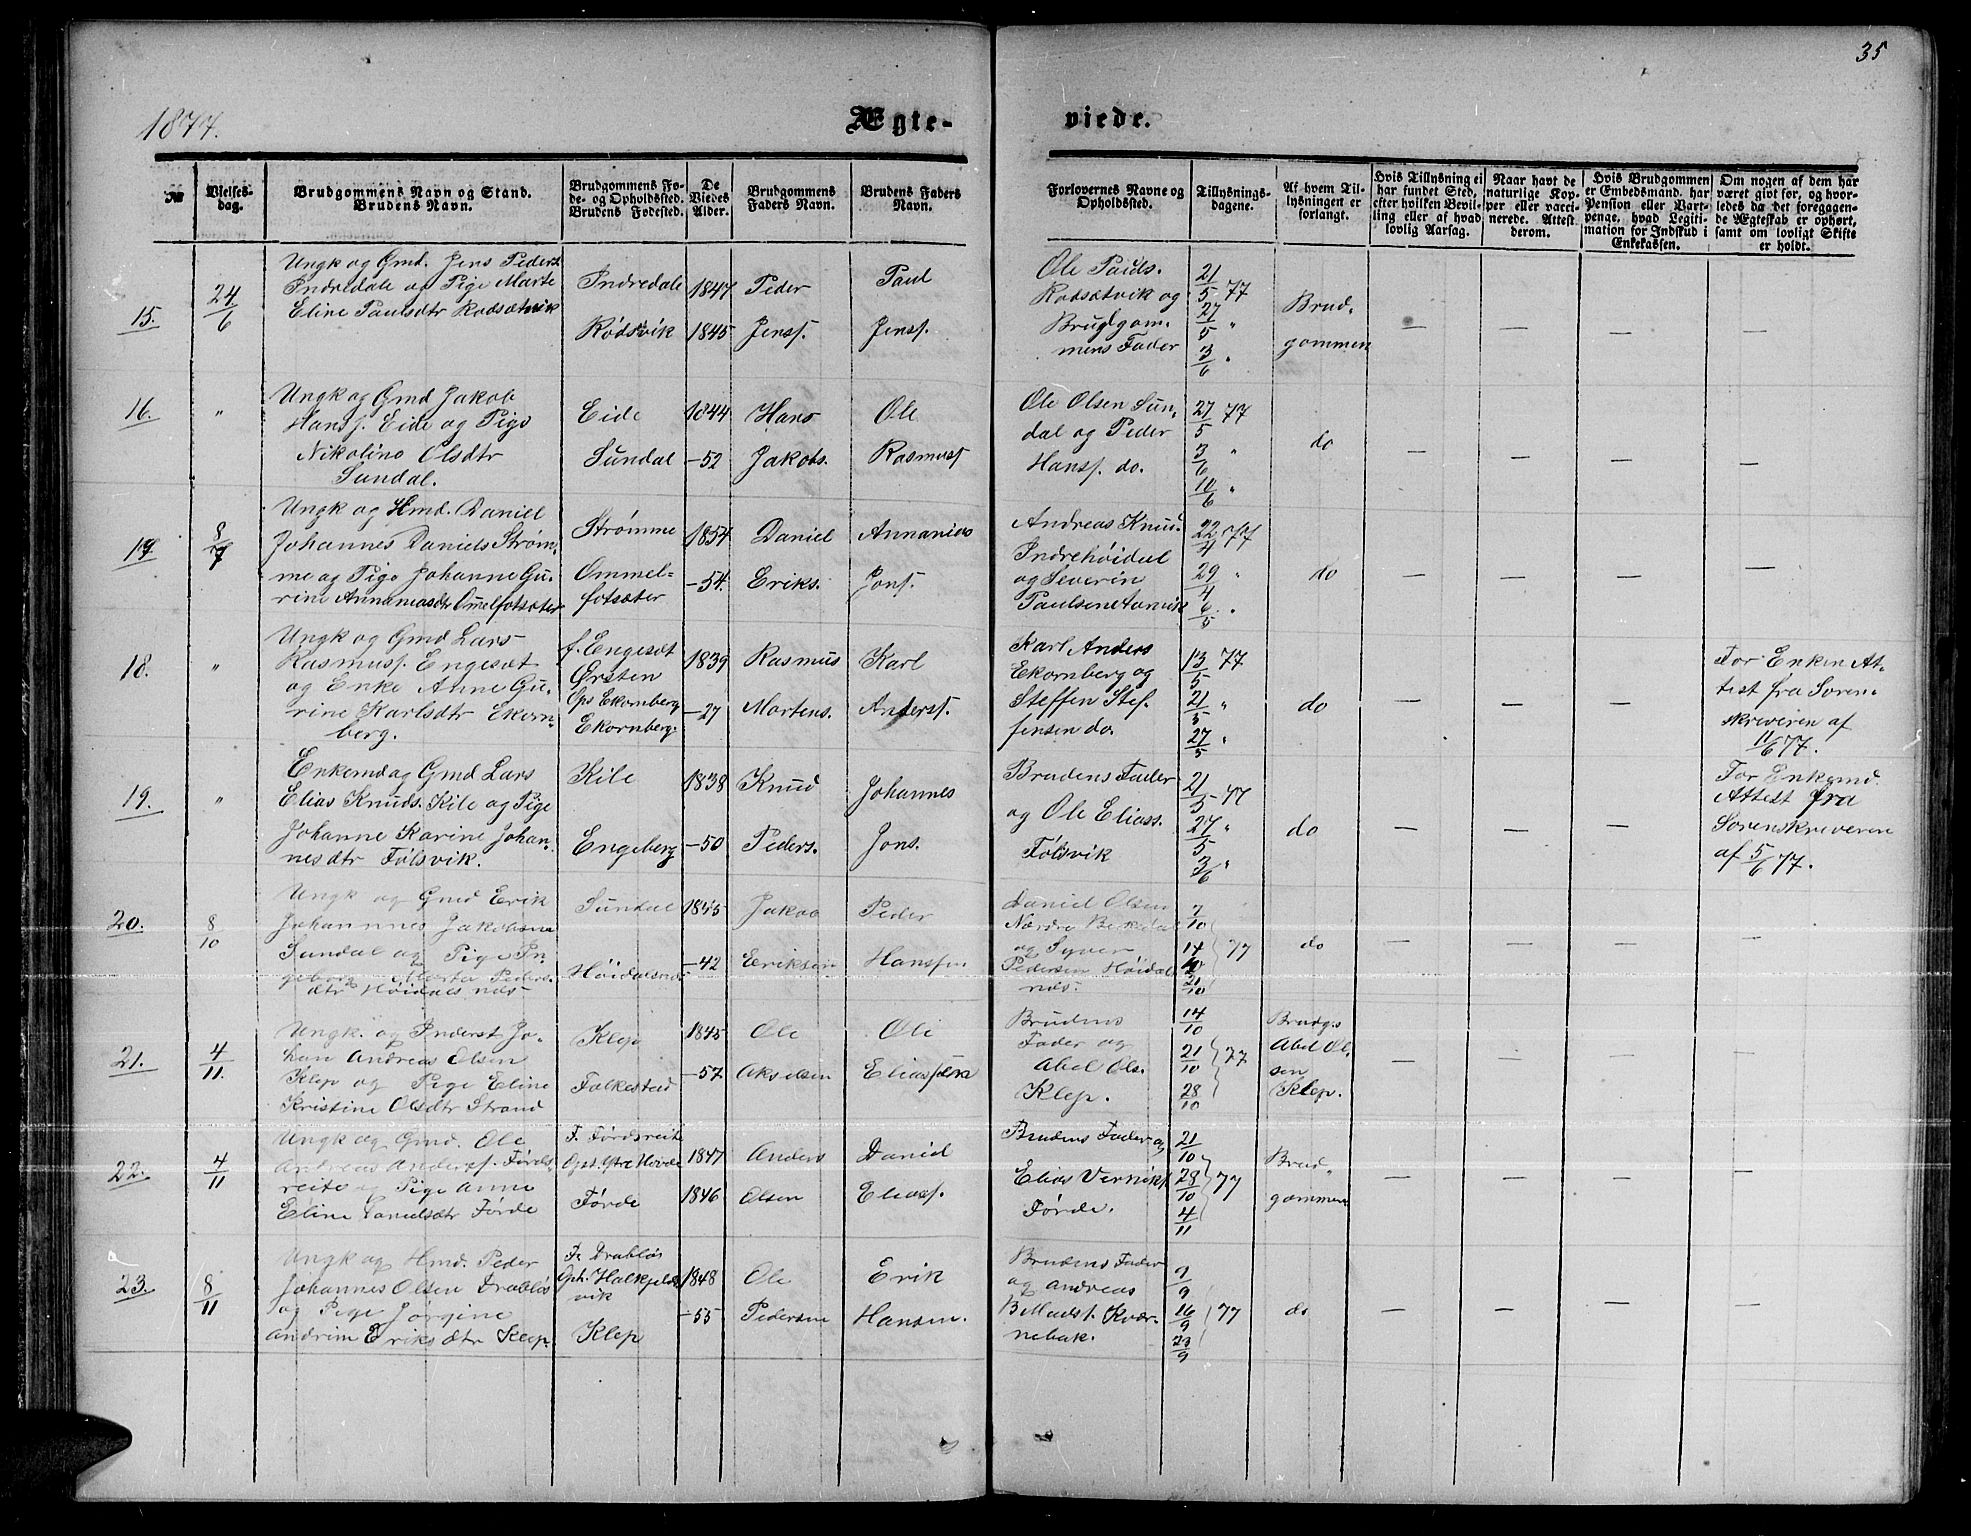 35
1877.
Ægte-
viede.
№
Vielses-
dag.
Brudgommens Navn og Stand.
Brudens Navn.
Brudgommens Fø-
de- og Opholdssted.
Brudens Fødested.
De
Viedes
Alder.
Brudgommens
Faders Navn.
Brudens Faders
Navn.
Forlovernes Navne og
Opholdssted.
Tillysnings-
dagene.
Af hvem Til-
lysningen er
forlangt.
Hvis Tillysning ei
har fundet Sted,
efter hvilken Bevil-
ling eller af hvad
lovlig Aarsag.
Naar havt de
naturlige Kop-
per eller vacci-
nerede. Attest
derom.
Hvis Brudgommen
er Embedsmand, har
Pension eller Vart-
penge, hvad Legiti-
mation for Indskud i
Enkekassen.
Om nogen af dem har
været givt før, og hvor-
ledes da det foregagen-
de Ægteskab er ophørt,
samt om lovligt Skifte
er holdt.
15.
24/6
Ungk og Gmd. Jens Peders.
Indredale og Pige Marte
Eline Paulsdtr Rødsætvik
Indredale
Rødsvik
1847
1845
Peder
Jensf.
Paul
Jensf.
Ole Pauls.
Rødsætvik og
Brudgom-
mens Fader
21/5 77
27/5 "
3/6 "
Brud-
gommen
— — — —
16.
"
Ungk og Gmd Jakob
Hansf. Eide og Pige
Nikoline Olsdtr
Sundal.
Eide
Sundal
1844
-52
Hans
Jakobs.
Ole
Rasmusf
Ole Olsen Sun-
dal og Peder
Hansf. do.
27/5 77
3/6 "
10/6 "
do
— — — —
17
8/7
Ungk og Hmd. Daniel
Johannes Daniels Strøm-
me og Pige Johanne Gu-
rine Annaniasdtr Ømelfotsæter
Strømme
Ommel-
fotsæter
1854
-54.
Daniel
Eriks.
Annanias
Jonsf.
Andreas Knud.
Indrehøidal
og Severin
22/4 77
29/4 "
6/5 "
do
— — — —
18.
"
Ungk og Gmd Lars
Rasmusf. Engesæt
og Enke Anne Gu-
rine Karlsdtr Ekorn-
berg.
f. Engesæt
Ørsten
Oph Ekornberg
Ekornberg.
1839
-27
Rasmus
Mortens.
Karl
Andersf.
Karl Anders
Ekornberg og
Steffen Stef-
fensen do.
13/5 77
21/5 "
27/5 "
do
— — —
For Enken At-
test fra Soren-
skriveren af
11/6 77.
19.
"
Enkemd og Gmd Lars
Elias Knuds. Kile og Pige
Johanne Karine Johan-
nesdtr Følsvik.
Kile
Engeberg
1838
-50
Knud
Peders.
Johannes
Jons.
Brudens Fader
og Ole Eliass.
Følsvik
21/5 77
27/5 "
3/6 "
do
— — —
For Enkemd.
Attest fra
Sorenskriveren
af 5/6 77.
20.
8/10
Ungk og Gmd Erik
Johannes Jakobsen
Sundal og Pige In-
geborg Marta Peders-
dtr Høidalsnes
Sundal
Høidalsnes
1845
-42
Jakob
Eriksen
Peder
Hansen
Daniel Olsen
og Syver
Pedersen Høidal
nes.
7/10
14/10 77
21/10
do
— — — —
21.
4/11.
Ungk. og Inderst Jo-
han Andreas Olsen
Klep og Pige Eline
Kristine Olsdtr Strand
Klep
Folkestad
1845
-57.
Ole
Akselsen
Ole
Brudens
Fader og
Abel Ols.
Klep.
14/10
21/10 77
28/10
Brudg. s
Abel Ol-
sen
Klep.
— — — —
22.
4/11
Ungk og Gmd. Ole
Andreas Andersf. Førds-
reite og Pige Anne
Eline Danielsdtr Førde
F. Førdsreite
Oph. Ytre Hovde
Førde
1847
1846
Anders
Olsen
Daniel
Eliasf.
Brudens Fader og
Elias Verniksf.
Førde.
21/10
28/10 77
4/11
Brud-
gommen
—
23.
8/11
Ungk og Hmd. Peder
Johannes Olsen Drabløs
og Pige Jørgine
Andrine Eriksdtr Klep.
F. Drabløs
Oph.
vik
Klep
1848
-55
Ole
Pedersen
Erik
Hansen.
Brudens Fader
og Andreas
B. Madsf. Kvær-
nebak.
9/9
16/9 77
23/9
do
— — — —